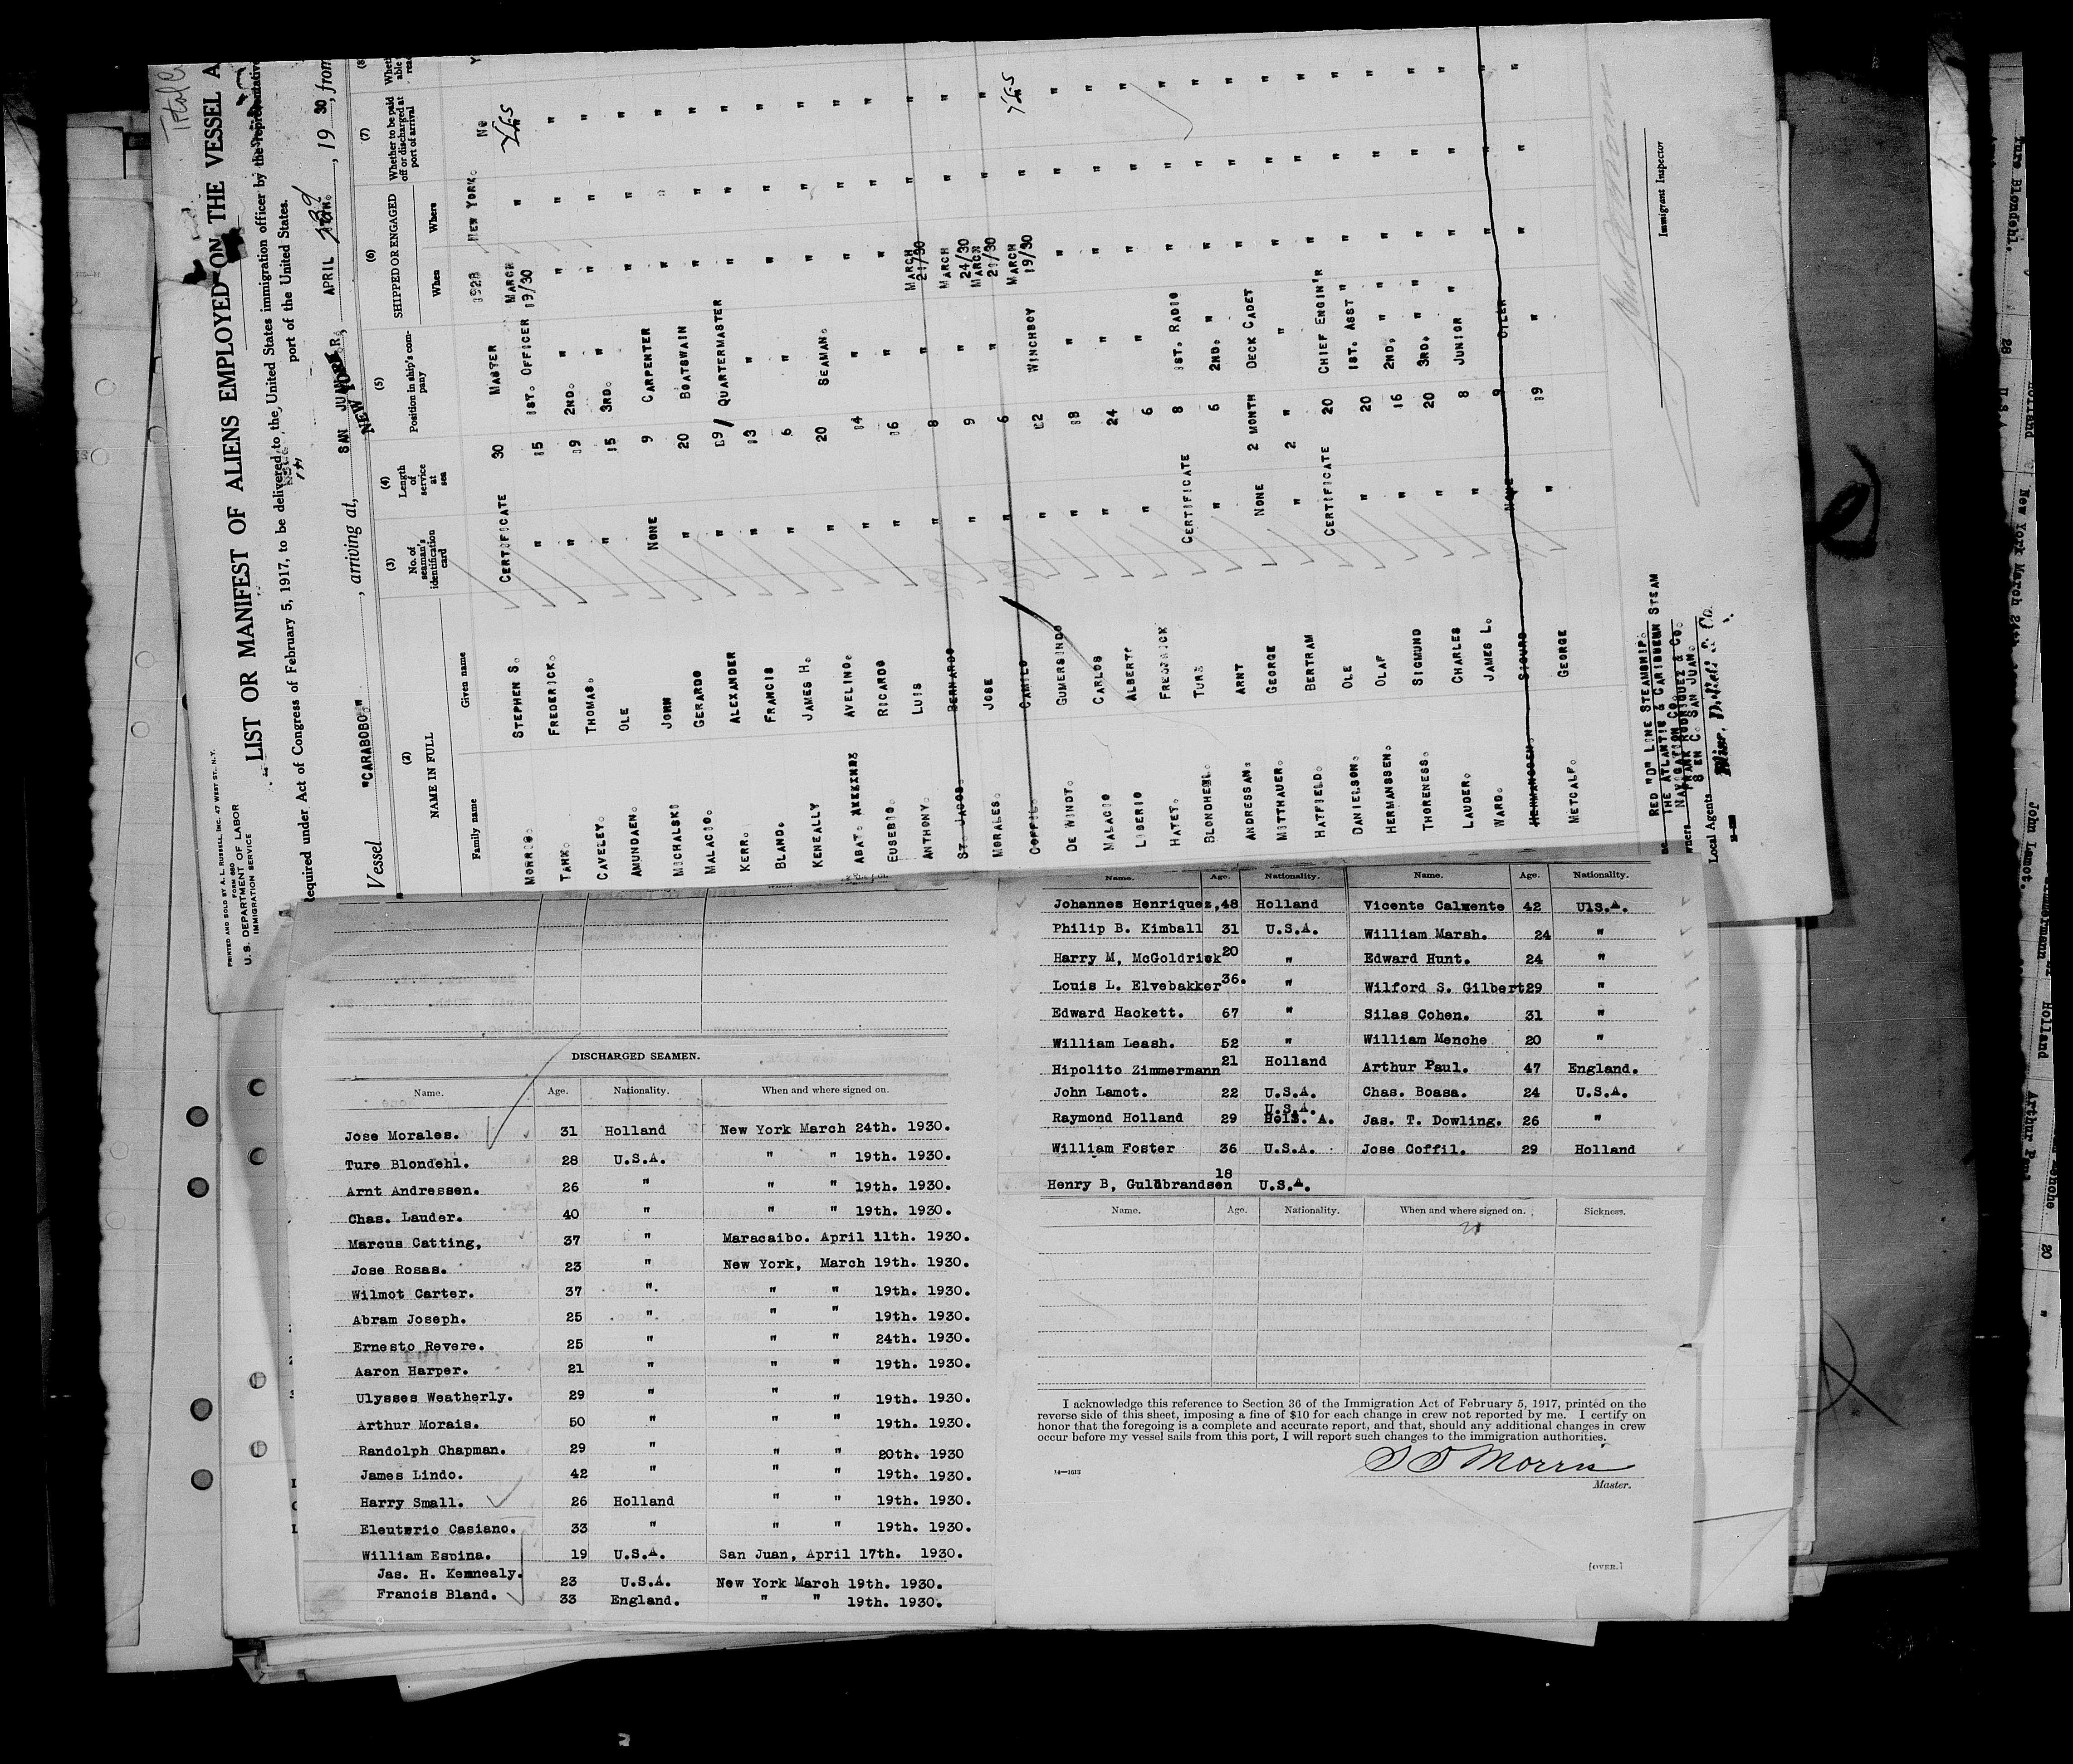 PRINTED AND SOLD BY A. L. RUSSELL, INC. 47 WEST ST., N.Y.
FORM 680
U. S. DEPARTMENT OF LABOR
IMMIGRATION SERVICE
LIST OR MANIFEST OF ALIENS EMPLOYED ON THE VESSEL A
Required under Act of Congress of February 5, 1917, to be delivered to the United States immigration officer by the representative
port of the United States.
Vessel "CARABOBO" , arriving at, SAN JUAN P.R., APRIL , 19 30, from
NEW YORK
(2) (3) (4) (5) (6) (7) (8
NAME IN FULL No. of seaman's identification card Length of service at sea Position in ship's company SHIPPED OR ENGAGED Whether to be paid off or discharged at port of arrival
Family name Given name When Where
MORRIS. STEPHEN S. CERTIFICATE 30 MASTER 1928 NEW YORK. No
TANK. FREDERICK. " 15 1ST. OFFICER MARCH 19/30 " Yes
CAVELEY. THOMAS. " 19 2ND. " " " "
AMUNDAEN. OLE " 15 3RD. " " " "
MICHALSKI JOHN NONE 9 CARPENTER " " "
MALACIO. GERARDO " 20 BOATSWAIN " " "
KERR. ALEXANDER " 19 QUARTERMASTER " " "
BLAND. FRANCIS " 13 " " " "
KENEALLY JAMES H. " 6 " " " "
ABAT. AVELINO. " 20 SEAMAN. " " "
EUSEBIO. RICARDO " 14 " " " "
ANTHONY. LUIS " 16 " " " "
ST. JAGO. BERNARDO " 8 " MARCH 21/30 " "
MORALES. JOSE " 9 " MARCH 24/30 " "
COFFIL. CAMILO " 6 " MARCH 21/30 " "
DE WINDT. GUMERSINDO " 12 WINCHBOY MARCH 19/30 " Yes
MALACIO CARLOS " 18 " " " "
LIBERIO ALBERTO " 24 " " " "
HATET. FREDRICK " 6 " " " "
BLONDHEHL. TURE CERTIFICATE 8 1ST. RADIO " " "
ANDRESSAN. ARNT " 6 2ND. " " " "
MITTHAUER. GEORGE NONE 2 MONTH DECK CADET " " "
HATFIELD. BERTRAM " 2 " " " " "
DANIELSON. OLE CERTIFICATE 20 CHIEF ENGIN'R " " "
HERMANSSEN. OLAF " 20 1ST. ASST " " " "
THORENESS. SIGMUND " 16 2ND. " " " "
LAUDER. CHARLES " 20 3RD. " " " "
WARD. JAMES L. " 8 JUNIOR " " " "
HERMANSSEN. SIGURD NONE 9 OILER " " "
METCALF. GEORGE " 19 " " " "
Immigrant Inspector
RED "D" LINE STEAMSHIP.
THE ATLANTIC & CARIBBEAN STEAM
NAVIGATION CO.
Owners
FRANK RODRIGUEZ & CO.
S EN C. SAN JUAN.
Local Agents Bliss, Dallett & Co.
DISCHARGED SEAMEN.
Name. Age. Nationality. When and where signed on.
Jose Morales. 31 Holland New York March 24th. 1930.
Ture Blondehl. 28 U.S.A. " " 19th. 1930.
Arnt Andressen. 26 " " " 19th. 1930.
Chas. Lauder. 40 " " " 19th. 1930.
Marcus Catting, 37 " Maracaibo. April 11th. 1930.
Jose Rosas. 23 " New York, March 19th. 1930.
Wilmot Carter. 37 " " " 19th. 1930.
Abram Joseph. 25 " " " 19th. 1930.
Ernesto Revere. 25 " " " 24th. 1930.
Aaron Harper. 21 " " " 19th. 1930.
Ulysses Weatherly. 29 " " " 19th. 1930.
Arthur Morais. 50 " " " 19th. 1930.
Randolph Chapman. 29 " " " 20th. 1930
James Lindo. 42 " " " 19th. 1930.
Harry Small. 26 Holland " " 19th. 1930.
Eleuterio Casiano. 33 " " " 19th. 1930.
William Espina. 19 U.S.A. San Juan, April 17th. 1930.
Jas. H. Kennealy. 23 U.S.A. New York March 19th. 1930.
Francis Bland. 33 England. " " 19th. 1930.
Name. Age. Nationality. Name. Age. Nationality.
Johannes Henriquez, 48 Holland Vicente Calmente 42 UlS.A.
Philip B. Kimball 31 U.S.A. William Marsh. 24 "
Harry M, McGoldrick 20 " Edward Hunt. 24 "
Louis L. Elvebakker 36. " Wilford S. Gilbert 29 "
Edward Hackett. 67 " Silas Cohen. 31 "
William Leash. 52 " William Menche 20 "
Hipolito Zimmermann 21 Holland Arthur Paul. 47 England.
John Lamot. 22 U.S.A. Chas. Boasa. 24 U.S.A.
Raymond Holland 29 U.S.A. Jas. T. Dowling. 26 "
William Foster 36 U.S.A. Jose Coffil. 29 Holland
Henry B, Guldbrandsen 18 U.S.A.
Name. Age. Nationality. When and where signed on. Sickness.
I acknowledge this reference to Section 36 of the Immigration Act of February 5, 1917, printed on the
reverse side of this sheet, imposing a fine of $10 for each change in crew not reported by me. I certify on
honor that the foregoing is a complete and accurate report, and that, should any additional changes in crew
occur before my vessel sails from this port, I will report such changes to the immigration authorities.
S S Morris
14—1613
Master.
[OVER.]